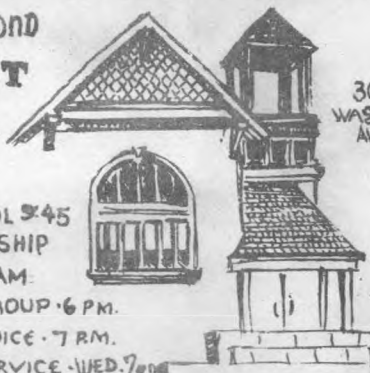 OND
T
30
WAS
A
OL 9:45
SHIP
AM
ROUP · 6 PM.
ICE · 7 P.M.
RVICE · WED. 7